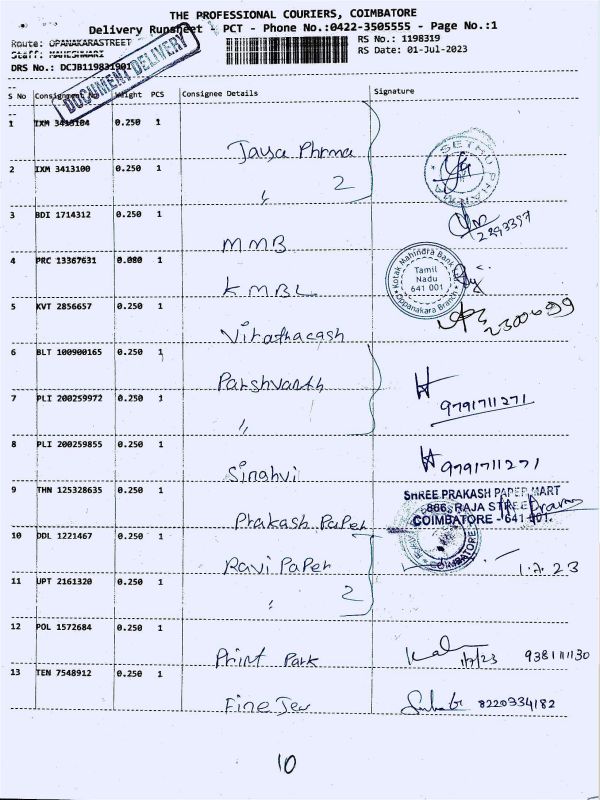 THE PROFESSIONAL COURIERS, COIMBATORE
Delivery Runsheet - PCT - Phone No.:0422-3505555 - Page No.:1
Route: OPANAKARASTREET
RS No.: 1198319
Staff: MAHESHWARI
RS Date: 01-Jul-2023
DRS No.: DCJB119831901
DOCUMENT DELIVERY
S No Consignment No Weight PCS Consignee Details Signature
1 IXM 3413104 0.250 1
Jaya Phrma
2 IXM 3413100 0.250 1
" 2
SETHU PHARMA
3 BDI 1714312 0.250 1
2293357
MMB
4 PRC 13367631 0.080 1
KMBL
Kotak Mahindra Bank
Tamil
Nadu
641 001
Oopanakara Branch
5 KVT 2856657 0.250 1
2300699
Virathacash
6 BLT 100900165 0.250 1
Parshvanth
7 PLI 200259972 0.250 1
9791711271
"
8 PLI 200259855 0.250 1
9791711271
Singhvi
9 THN 125328635 0.250 1
SHREE PRAKASH PAPER MART
866, RAJA STREET
COIMBATORE - 641 001.
Prakash Paper
10 DDL 1221467 0.250 1
Ravi Paper
1.7.23
11 UPT 2161320 0.250 1
" 2
COIMBATORE
12 POL 1572684 0.250 1
Print Park
1/7/23 9381111130
13 TEN 7548912 0.250 1
Fine Jew
8220934182
10